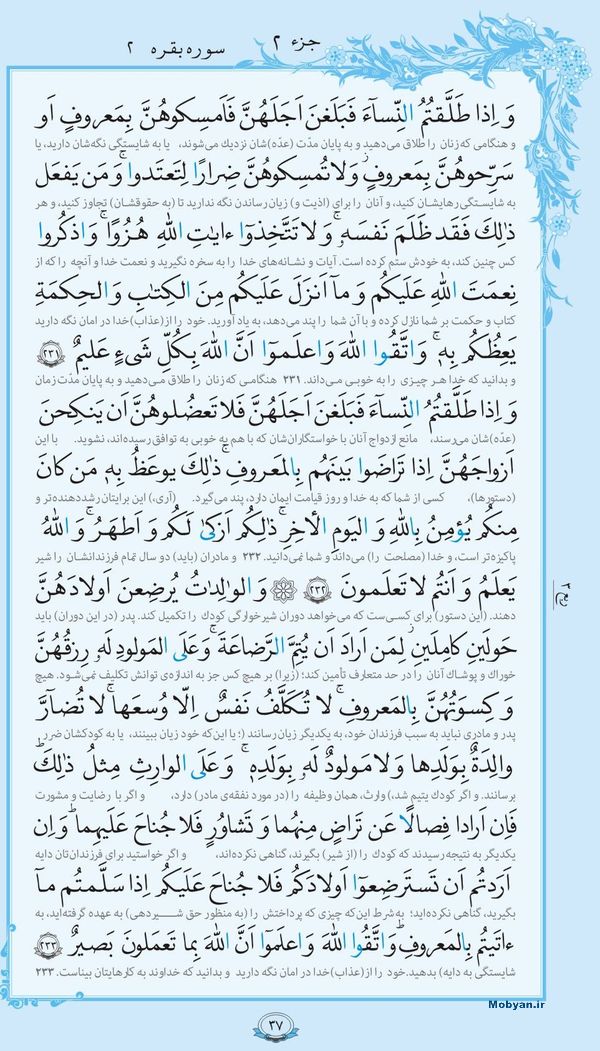 جزء ۲ سوره بقره ۲
وَ اِذا طَلَّقتُمُ النِّساءَ فَبَلَغنَ اَجَلَهُنَّ فَاَمسِكوهُنَّ بِمَعروفٍ اَو
و هنگامی که زنان را طلاق می‌دهید و به پایان مدّت (عدّه)شان نزدیك می‌شوند، یا به شایستگی نگه‌شان دارید، یا
سَرِّحوهُنَّ بِمَعروفٍ ۚ وَلا تُمسِكوهُنَّ ضِرارًا لِتَعتَدوا ۚ وَ مَن يَفعَل
به شایستگی رهایشان کنید، و آنان را برای (اذیت و) زیان رساندن نگه ندارید تا (به حقوقشان) تجاوز کنید، و هر
ذٰلِكَ فَقَد ظَلَمَ نَفسَهُ ۚ وَ لا تَتَّخِذوا ءاياتِ اللهِ هُزُوًا ۚ وَ اذكُروا
کس چنین کند، به خودش ستم کرده است. آیات و نشانه‌های خدا را به سخره نگیرید و نعمت خدا و آنچه را که از
نِعمَتَ اللهِ عَلَيكُم وَ ما اَنزَلَ عَلَيكُم مِنَ الكِتٰبِ وَ الحِكمَةِ
کتاب و حکمت بر شما نازل کرده و با آن شما را پند می‌دهد، به یاد آورید. خود را از(عذاب)خدا در امان نگه دارید
يَعِظُكُم بِهِ ۚ وَ اتَّقُوا اللهَ وَ اعلَموا اَنَّ اللهَ بِكُلِّ شَیءٍ عَليمٌ ﴿۲۳۱﴾
و بدانید که خدا هر چیزی را به خوبی می‌داند. ۲۳۱ هنگامی که زنان را طلاق می‌دهید و به پایان مدّت زمان
وَ اِذا طَلَّقتُمُ النِّساءَ فَبَلَغنَ اَجَلَهُنَّ فَلا تَعضُلوهُنَّ اَن يَنكِحنَ
(عدّه)شان می‌رسند، مانع ازدواج آنان با خواستگاران‌شان که با هم به خوبی به توافق رسیده‌اند، نشوید. با این
اَزواجَهُنَّ اِذا تَراضَوا بَينَهُم بِالمَعروفِ ۗ ذٰلِكَ يوعَظُ بِهِ مَن كانَ
(دستورها)، کسی از شما که به خدا و روز قیامت ایمان دارد، پند می‌گیرد. (آری،) این برایتان رشددهنده‌تر و
مِنكُم يُؤمِنُ بِاللهِ وَ اليَومِ الأخِرِ ۗ ذٰلِكُم اَزكىٰ لَكُم وَ اَطهَرُ ۗ وَ اللهُ
پاکیزه‌تر است، و خدا (مصلحت را) می‌داند و شما نمی‌دانید. ۲۳۲ و مادران (باید) دو سال تمام فرزندانشان را شیر
يَعلَمُ وَ اَنتُم لا تَعلَمونَ ﴿۲۳۲﴾ وَ الوالِداتُ يُرضِعنَ اَولادَهُنَّ
دهند. (این دستور) برای کسی‌ست که می‌خواهد دوران شیرخوارگی کودك را تکمیل کند. پدر (در این دوران) باید
حَولَينِ كامِلَينِ ۖ لِمَن اَرادَ اَن يُتِمَّ الرَّضاعَةَ ۚ وَعَلَى المَولودِ لَهُ رِزقُهُنَّ
خوراك و پوشاك آنان را در حد متعارف تأمین کند؛ (زیرا) بر هیچ کس جز به اندازه‌ی توانش تکلیف نمی‌شود. هیچ
وَ كِسوَتُهُنَّ بِالمَعروفِ ۚ لا تُكَلَّفُ نَفسٌ اِلّا وُسعَها ۚ لا تُضارَّ
پدر و مادری نباید به سبب فرزندان خود، به یکدیگر زیان رسانند (؛ یا این‌که خود زیان ببینند، یا به کودکشان ضرر
والِدَةٌ بِوَلَدِها وَ لا مَولودٌ لَهُ بِوَلَدِهِ ۚ وَعَلَى الوارِثِ مِثلُ ذٰلِكَ ۗ
برسانند. و اگر کودك یتیم شد،) وارث، همان وظیفه را (در مورد نفقه‌ی مادر) دارد، و اگر با رضایت و مشورت
فَاِن اَرادا فِصالًا عَن تَراضٍ مِنهُما وَ تَشاوُرٍ فَلا جُناحَ عَلَيهِما ۗ وَ اِن
یکدیگر به نتیجه رسیدند که کودك را (از شیر) بگیرند، گناهی نکرده‌اند، و اگر خواستید برای فرزندان‌تان دایه
اَرَدتُم اَن تَستَرضِعوا اَولادَكُم فَلا جُناحَ عَلَيكُم اِذا سَلَّمتُم ما
بگیرید، گناهی نکرده‌اید؛ به‌شرط این‌که چیزی که پرداختش را (به منظور حق شیردهی) به عهده گرفته‌اید، به
ءاتَيتُم بِالمَعروفِ ۗ وَ اتَّقُوا اللهَ وَ اعلَموا اَنَّ اللهَ بِما تَعمَلونَ بَصيرٌ ﴿۲۳۳﴾
شایستگی به دایه) بدهید.خود را از(عذاب)خدا در امان نگه دارید و بدانید که خداوند به کارهایتان بیناست. ۲۳۳
۳۷
Mobyan.ir